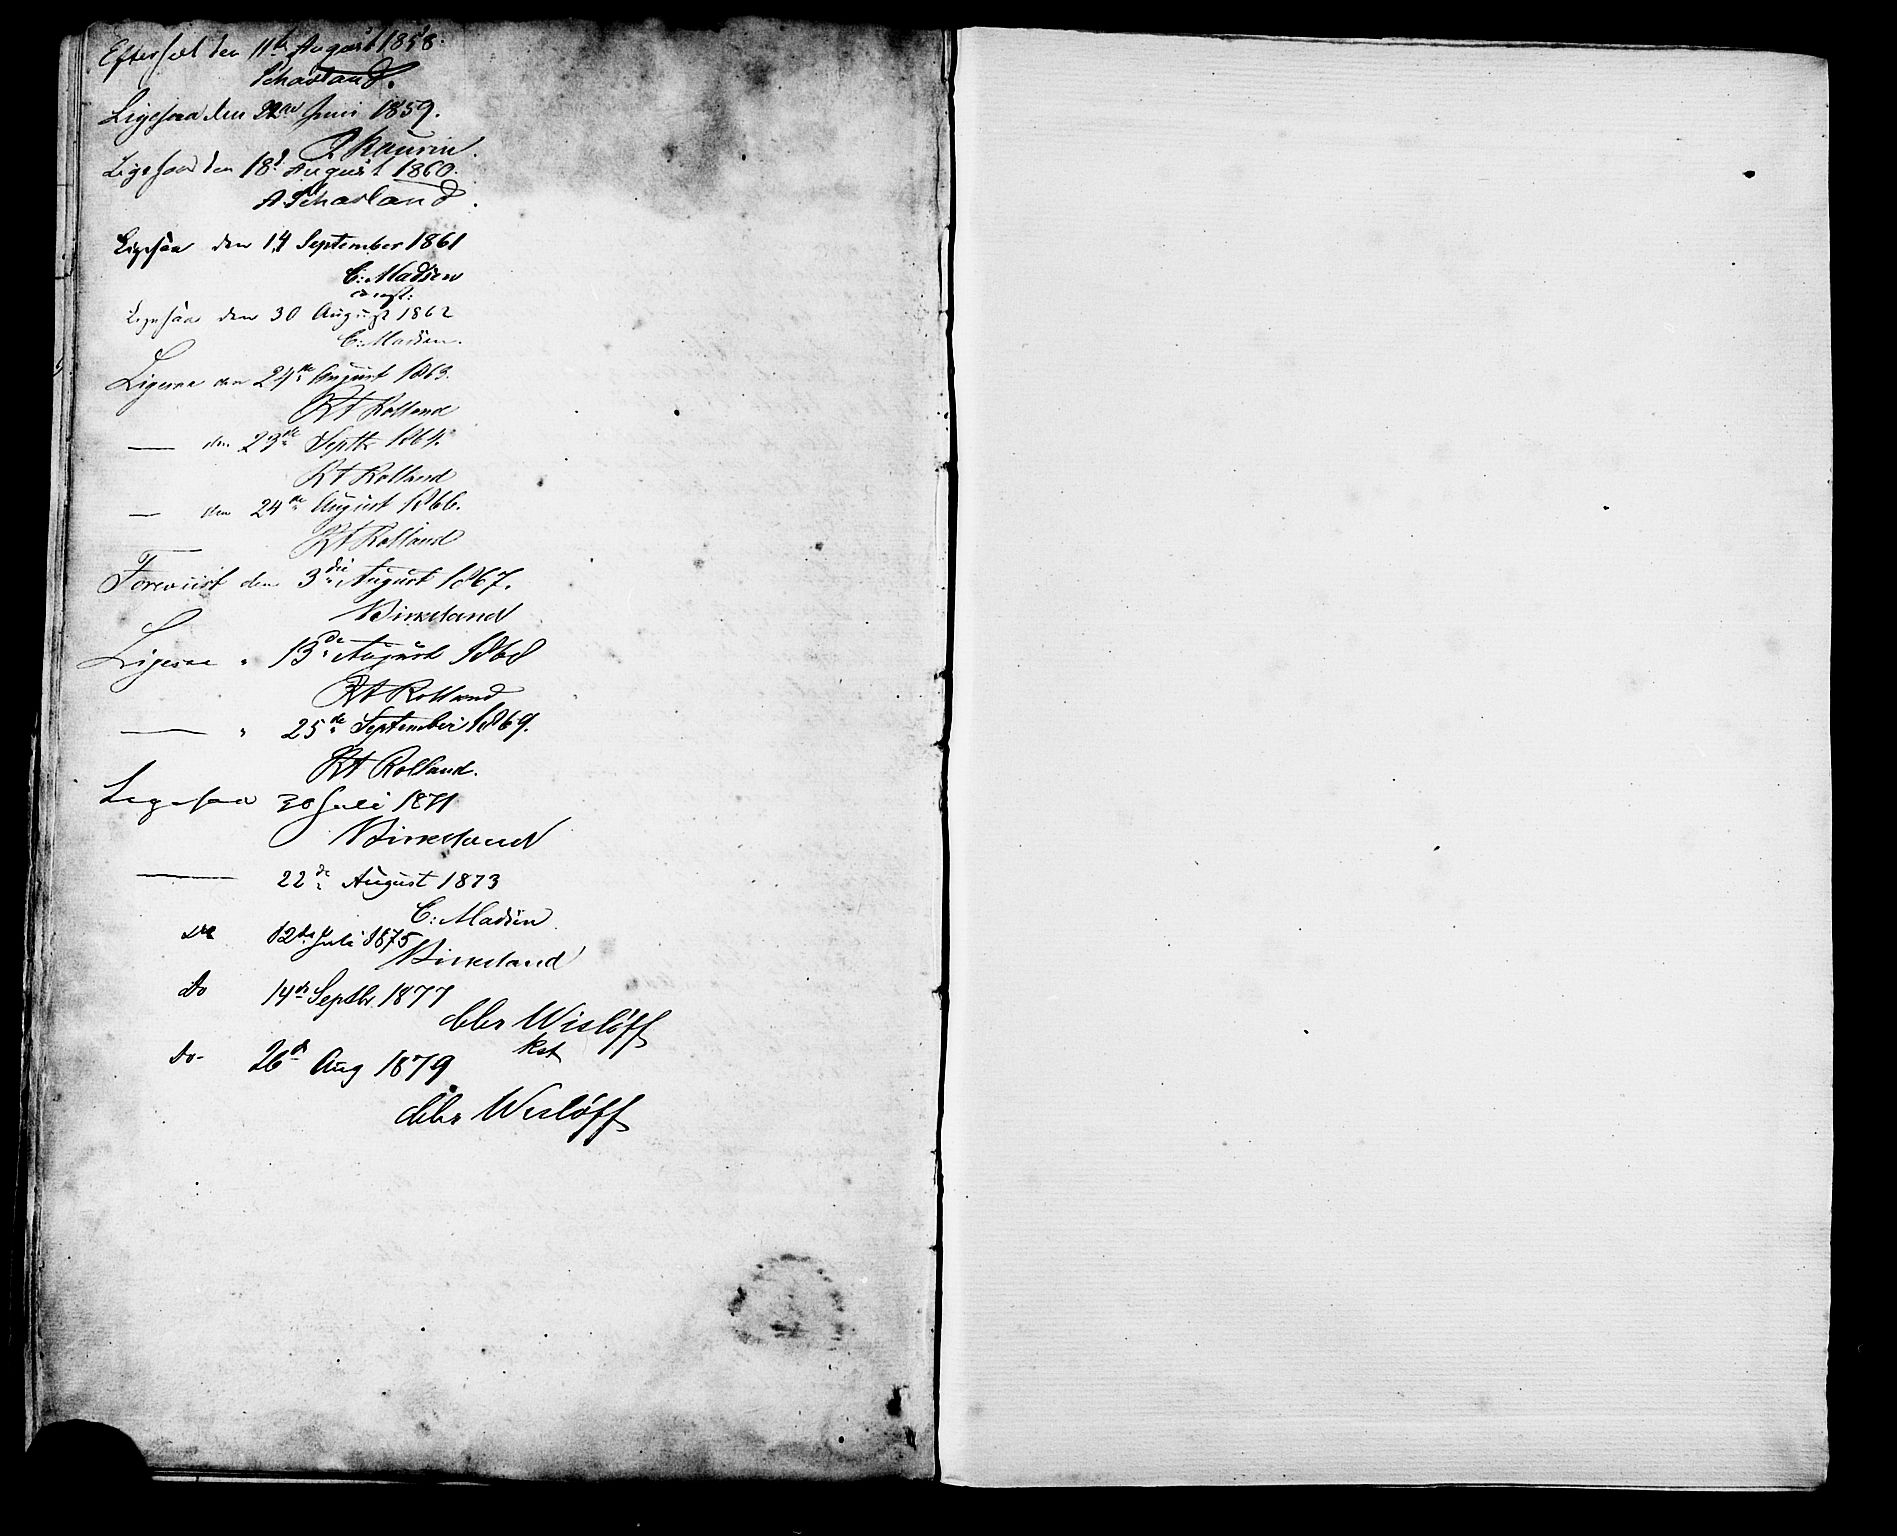 Efterseet den 11te August 1858.
Schavland.
Ligesaa den 22de Juni 1859.
Kaurin.
Ligesaa den 18d August 1860.
A Schavland.
Ligesaa den 14 September 1861
C: Madsen
const:
Ligesaa den 30 August 1862
C: Madsen.
Ligesaa den 24de August 1863.
Rt Rolland
— den 23de Septb 1864.
Rt Rolland
— den 24de August 1866.
Rt Rolland
Foreviist den 3die August 1867.
Birkeland
Ligesaa " 13de August 1868
Rt Rolland
— " 25de September 1869.
Rt Rolland.
Ligesaa 30 Juli 1871
Birkeland
— 22de August 1873
C: Madsen.
Do 12te Juli 1875
Birkeland
Do 14de Septbr. 1877
Wisløff
kst
Do- 26d Aug 1879
Wisløff